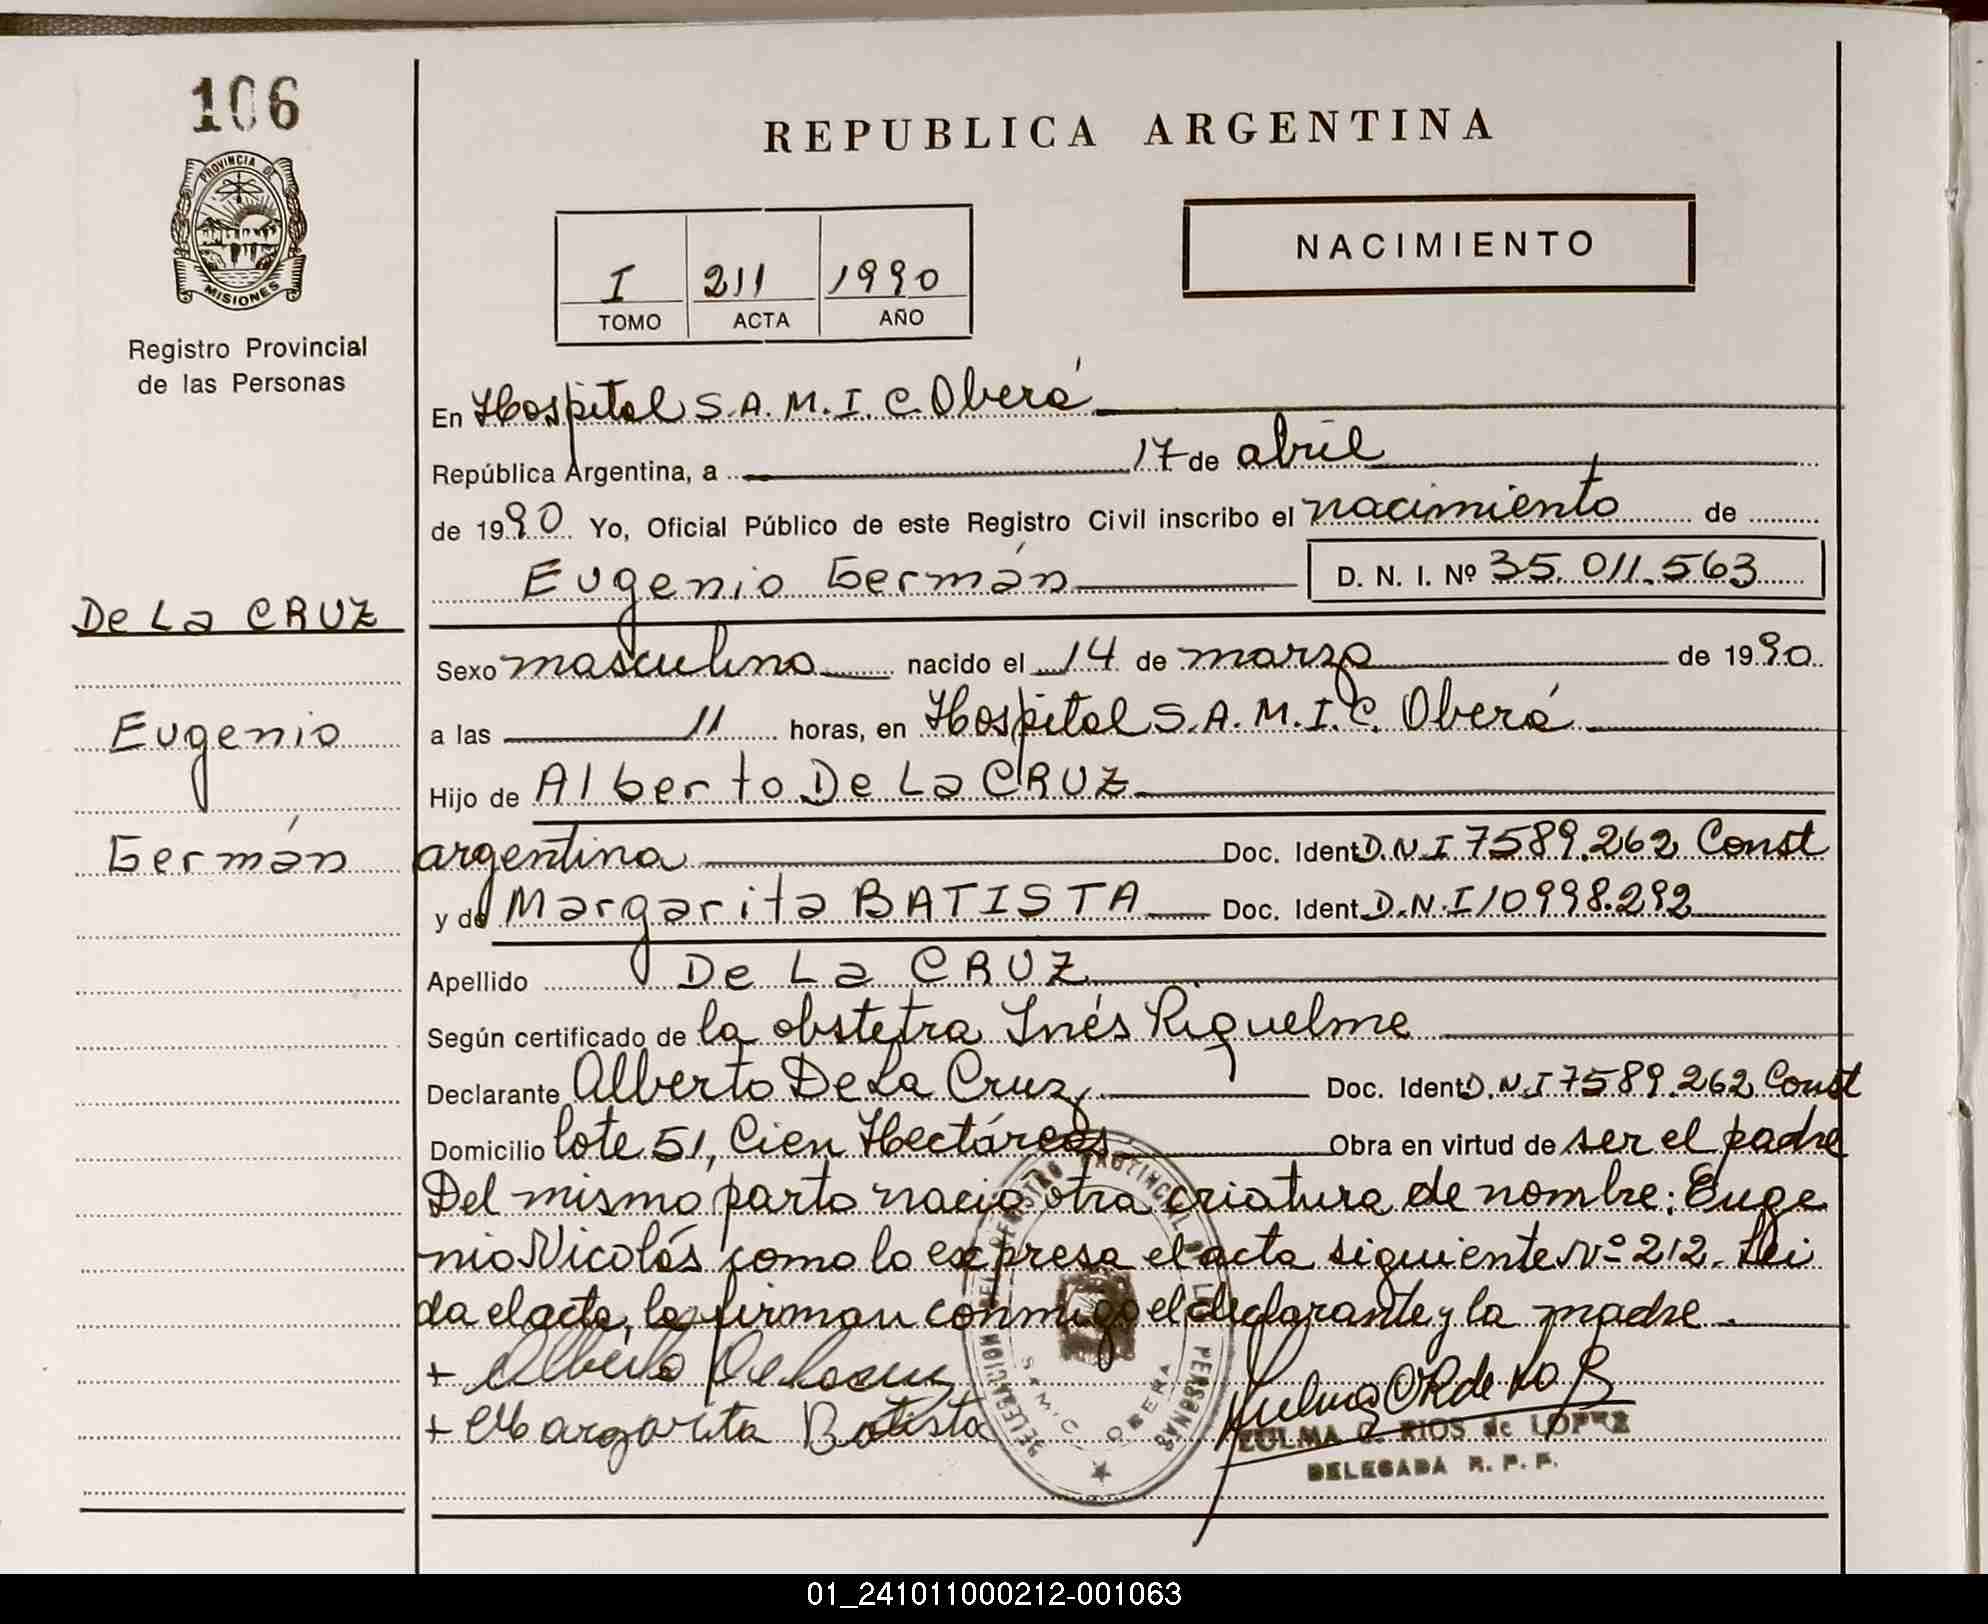 106
PROVINCIA DE
MISIONES
Registro Provincial
de las Personas
De La CRUZ
Eugenio
Germán
REPUBLICA ARGENTINA
I 211 1990
TOMO ACTA AÑO
NACIMIENTO
En Hospital S.A.M.I.C. Oberá
República Argentina, a 17 de abril
de 1990 Yo, Oficial Público de este Registro Civil inscribo el nacimiento de
Eugenio Germán D. N. I. Nº 35.011.563
Sexo masculino nacido el 14 de marzo de 1990
a las 11 horas, en Hospital S.A.M.I.C. Oberá
Hijo de Alberto De La CRUZ
argentina Doc. Ident D.N.I 7589.262 Const
y de Margarita BATISTA Doc. Ident. D.N.I 10998.292
Apellido De La CRUZ
Según certificado de la obstetra Inés Riquelme
Declarante Alberto De La Cruz Doc. Ident D.N.I 7589.262 Const
Domicilio lote 51, Cien Hectáreas Obra en virtud de ser el padre
Del mismo parto nació otra criatura de nombre: Euge
nio Nicolás como lo expresa el acta siguiente Nº 212. Leí
da el acta, la firman conmigo el declarante y la madre
+ Alberto De la cruz
+ Margarita Batista
DELEGACION DEL REGISTRO PROVINCIAL DE LAS PERSONAS
S.A.M.I.C. - OBERA
ZULMA C. RIOS de LOPEZ
DELEGADA R. P. P.
01_241011000212-001063